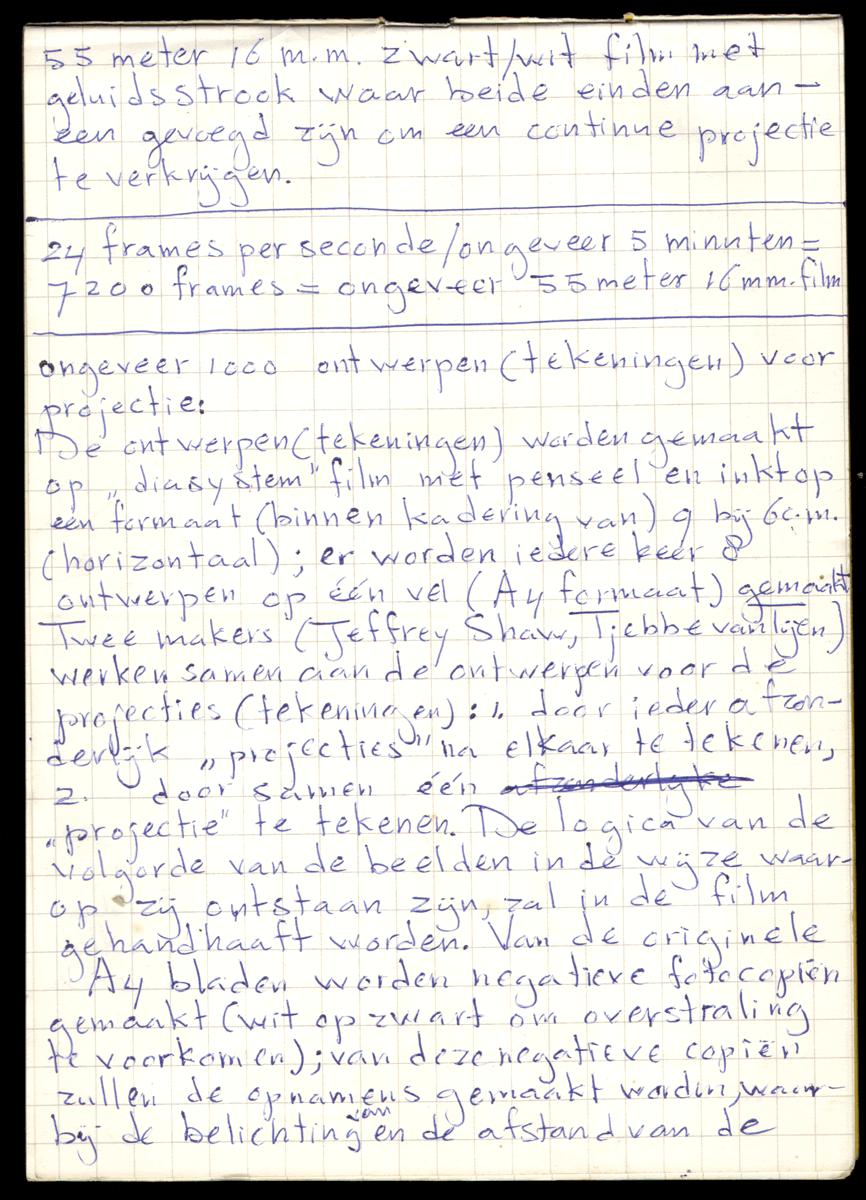 55 meter 16 m.m. zwart/wit film met
geluidsstrook waar beide einden aan-
een gevoegd zijn om een continue projectie
te verkrijgen.
24 frames per seconde/ongeveer 5 minuten =
7200 frames = ongeveer 55 meter 16 mm. film
ongeveer 1000 ontwerpen (tekeningen) voor
projectie:
De ontwerpen (tekeningen) worden gemaakt
op „diasystem" film met penseel en inkt op
een formaat (binnen kadering van) 9 bij 6 c.m.
(horizontaal); er worden iedere keer 8
ontwerpen op één vel (A4 formaat) gemaakt
Twee makers (Jeffrey Shaw, Tjebbe van Tijen)
werken samen aan de ontwerpen voor de
projecties (tekeningen): 1. door ieder afzon-
derlijk „projecties" na elkaar te tekenen,
2. door samen één afzonderlijke
„projectie" te tekenen. De logica van de
volgorde van de beelden in de wijze waar-
op zij ontstaan zijn, zal in de film
gehandhaaft worden. Van de originele
A4 bladen worden negatieve fotocopiën
gemaakt (wit op zwart om overstraling
te voorkomen); van deze negatieve copiën
zullen de opnamens gemaakt wordin, waar-
bij de belichting van en de afstand van de